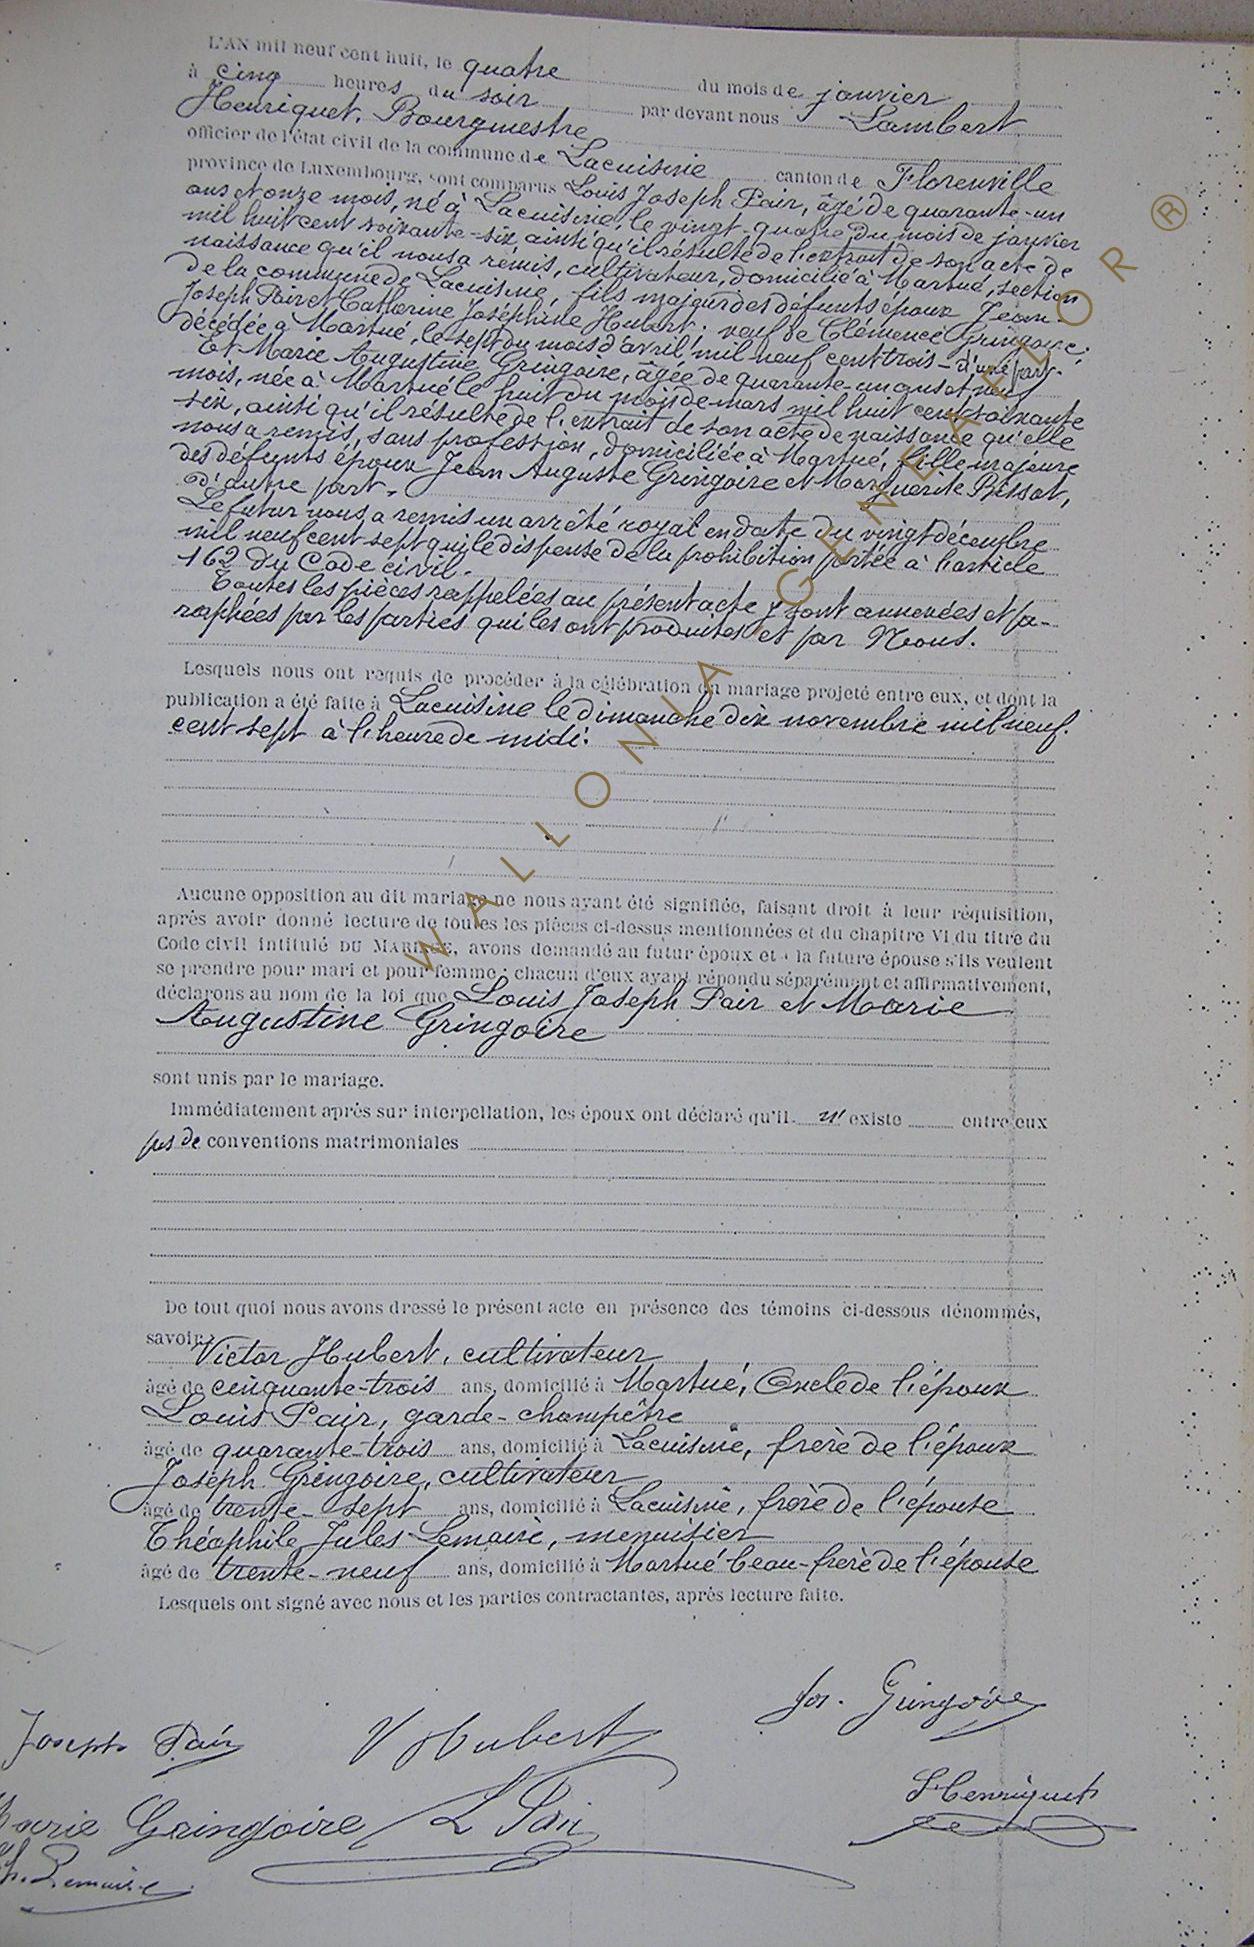 L'AN mil neuf cent huit, le quatre du mois de janvier
à cinq heures du soir par devant nous Lambert
Henriquet, Bourgmestre
officier de l'état civil de la commune de Lacuisine canton de Florenville
province de Luxembourg, sont comparus Louis Joseph Pair, âgé de quarante-un
ans et onze mois, né à Lacuisine, le vingt-quatre du mois de janvier
mil huit cent soixante-six, ainsi qu'il résulte de l'extrait de son acte de
naissance qu'il nous a remis, cultivateur, domicilié à Martué, section
de la commune de Lacuisine, fils majeur des défunts époux Jean-
Joseph Pair et Catherine Joséphine Hubert; veuf de Clémence Gringoire,
décédée à Martué, le sept du mois d'avril mil neuf cent trois – d'une part.
Et Marie Augustine Gringoire, âgée de quarante-un ans et neuf
mois, née à Martué le huit du mois de mars mil huit cent soixante
six, ainsi qu'il résulte de l'extrait de son acte de naissance qu'elle
nous a remis, sans profession, domiciliée à Martué, fille majeure
des défunts époux Jean Auguste Gringoire et Marguerite Bissot,
d'autre part.
Le futur nous a remis un arrêté royal en date du vingt décembre
mil neuf cent sept qui le dispense de la prohibition portée à l'article
162 du Code civil.
Toutes les pièces rappelées au présent acte y sont annexées et pa-
raphées par les parties qui les ont produites et par Nous.
Lesquels nous ont requis de procéder à la célébration du mariage projeté entre eux, et dont la
publication a été faite à Lacuisine le dimanche dix novembre mil neuf
cent sept à l'heure de midi.
Aucune opposition au dit mariage ne nous ayant été signifiée, faisant droit à leur réquisition,
après avoir donné lecture de toutes les pièces ci-dessus mentionnées et du chapitre VI du titre du
Code civil intitulé DU MARIAGE, avons demandé au futur époux et à la future épouse s'ils veulent
se prendre pour mari et pour femme ; chacun d'eux ayant répondu séparément et affirmativement,
déclarons au nom de la loi que Louis Joseph Pair et Marie
Augustine Gringoire
sont unis par le mariage.
Immédiatement après sur interpellation, les époux ont déclaré qu'il n'existe entre eux
pas de conventions matrimoniales
De tout quoi nous avons dressé le présent acte en présence des témoins ci-dessous dénommés,
savoir:
Victor Hubert, cultivateur
âgé de cinquante-trois ans, domicilié à Martué, Oncle de l'époux
Louis Pair, garde-champêtre
âgé de quarante-trois ans, domicilié à Lacuisine, frère de l'époux
Joseph Gringoire, cultivateur
âgé de trente-sept ans, domicilié à Lacuisine, frère de l'épouse
Théophile Jules Lemaire, menuisier
âgé de trente-neuf ans, domicilié à Martué beau-frère de l'épouse
Lesquels ont signé avec nous et les parties contractantes, après lecture faite.
Jos. Gringoire
Joseph Pair V Hubert
L Henriquet
Marie Gringoire L Pair
Th. Lemaire
WALLONIA.GENEAFLOR ®